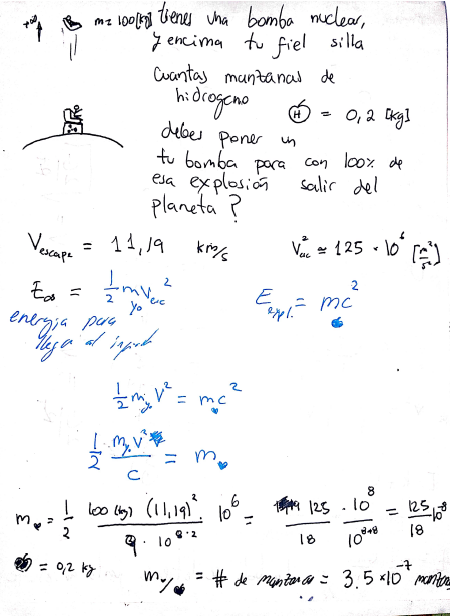 +∞ ↑ m = 100[kg] tienes una bomba nuclear,
y encima tu fiel silla
cuantas manzanas de
hidrogeno
H = 0,2 [kg]
debes poner en
tu bomba para con 100% de
esa explosión salir del
planeta?
V_escape = 11,19 km/s V_esc² ≃ 125 · 10⁶ [m²/s²]
E_∞ = 1/2 m_yo V_esc² E_expl. = mc²
energia para
llegar al
1/2 m_yo V² = mc²
1/2 m_yo V² / c = m
m = 1/2 100 (kg) (11,19)² · 10⁶ / 9 · 10^(8·2) = 125 / 18 · 10⁸ / 10^(8+8) = 125/18 10⁻⁸
= 0,2 kg m/ = # de manzanas = 3.5 × 10⁻⁷ manzanas